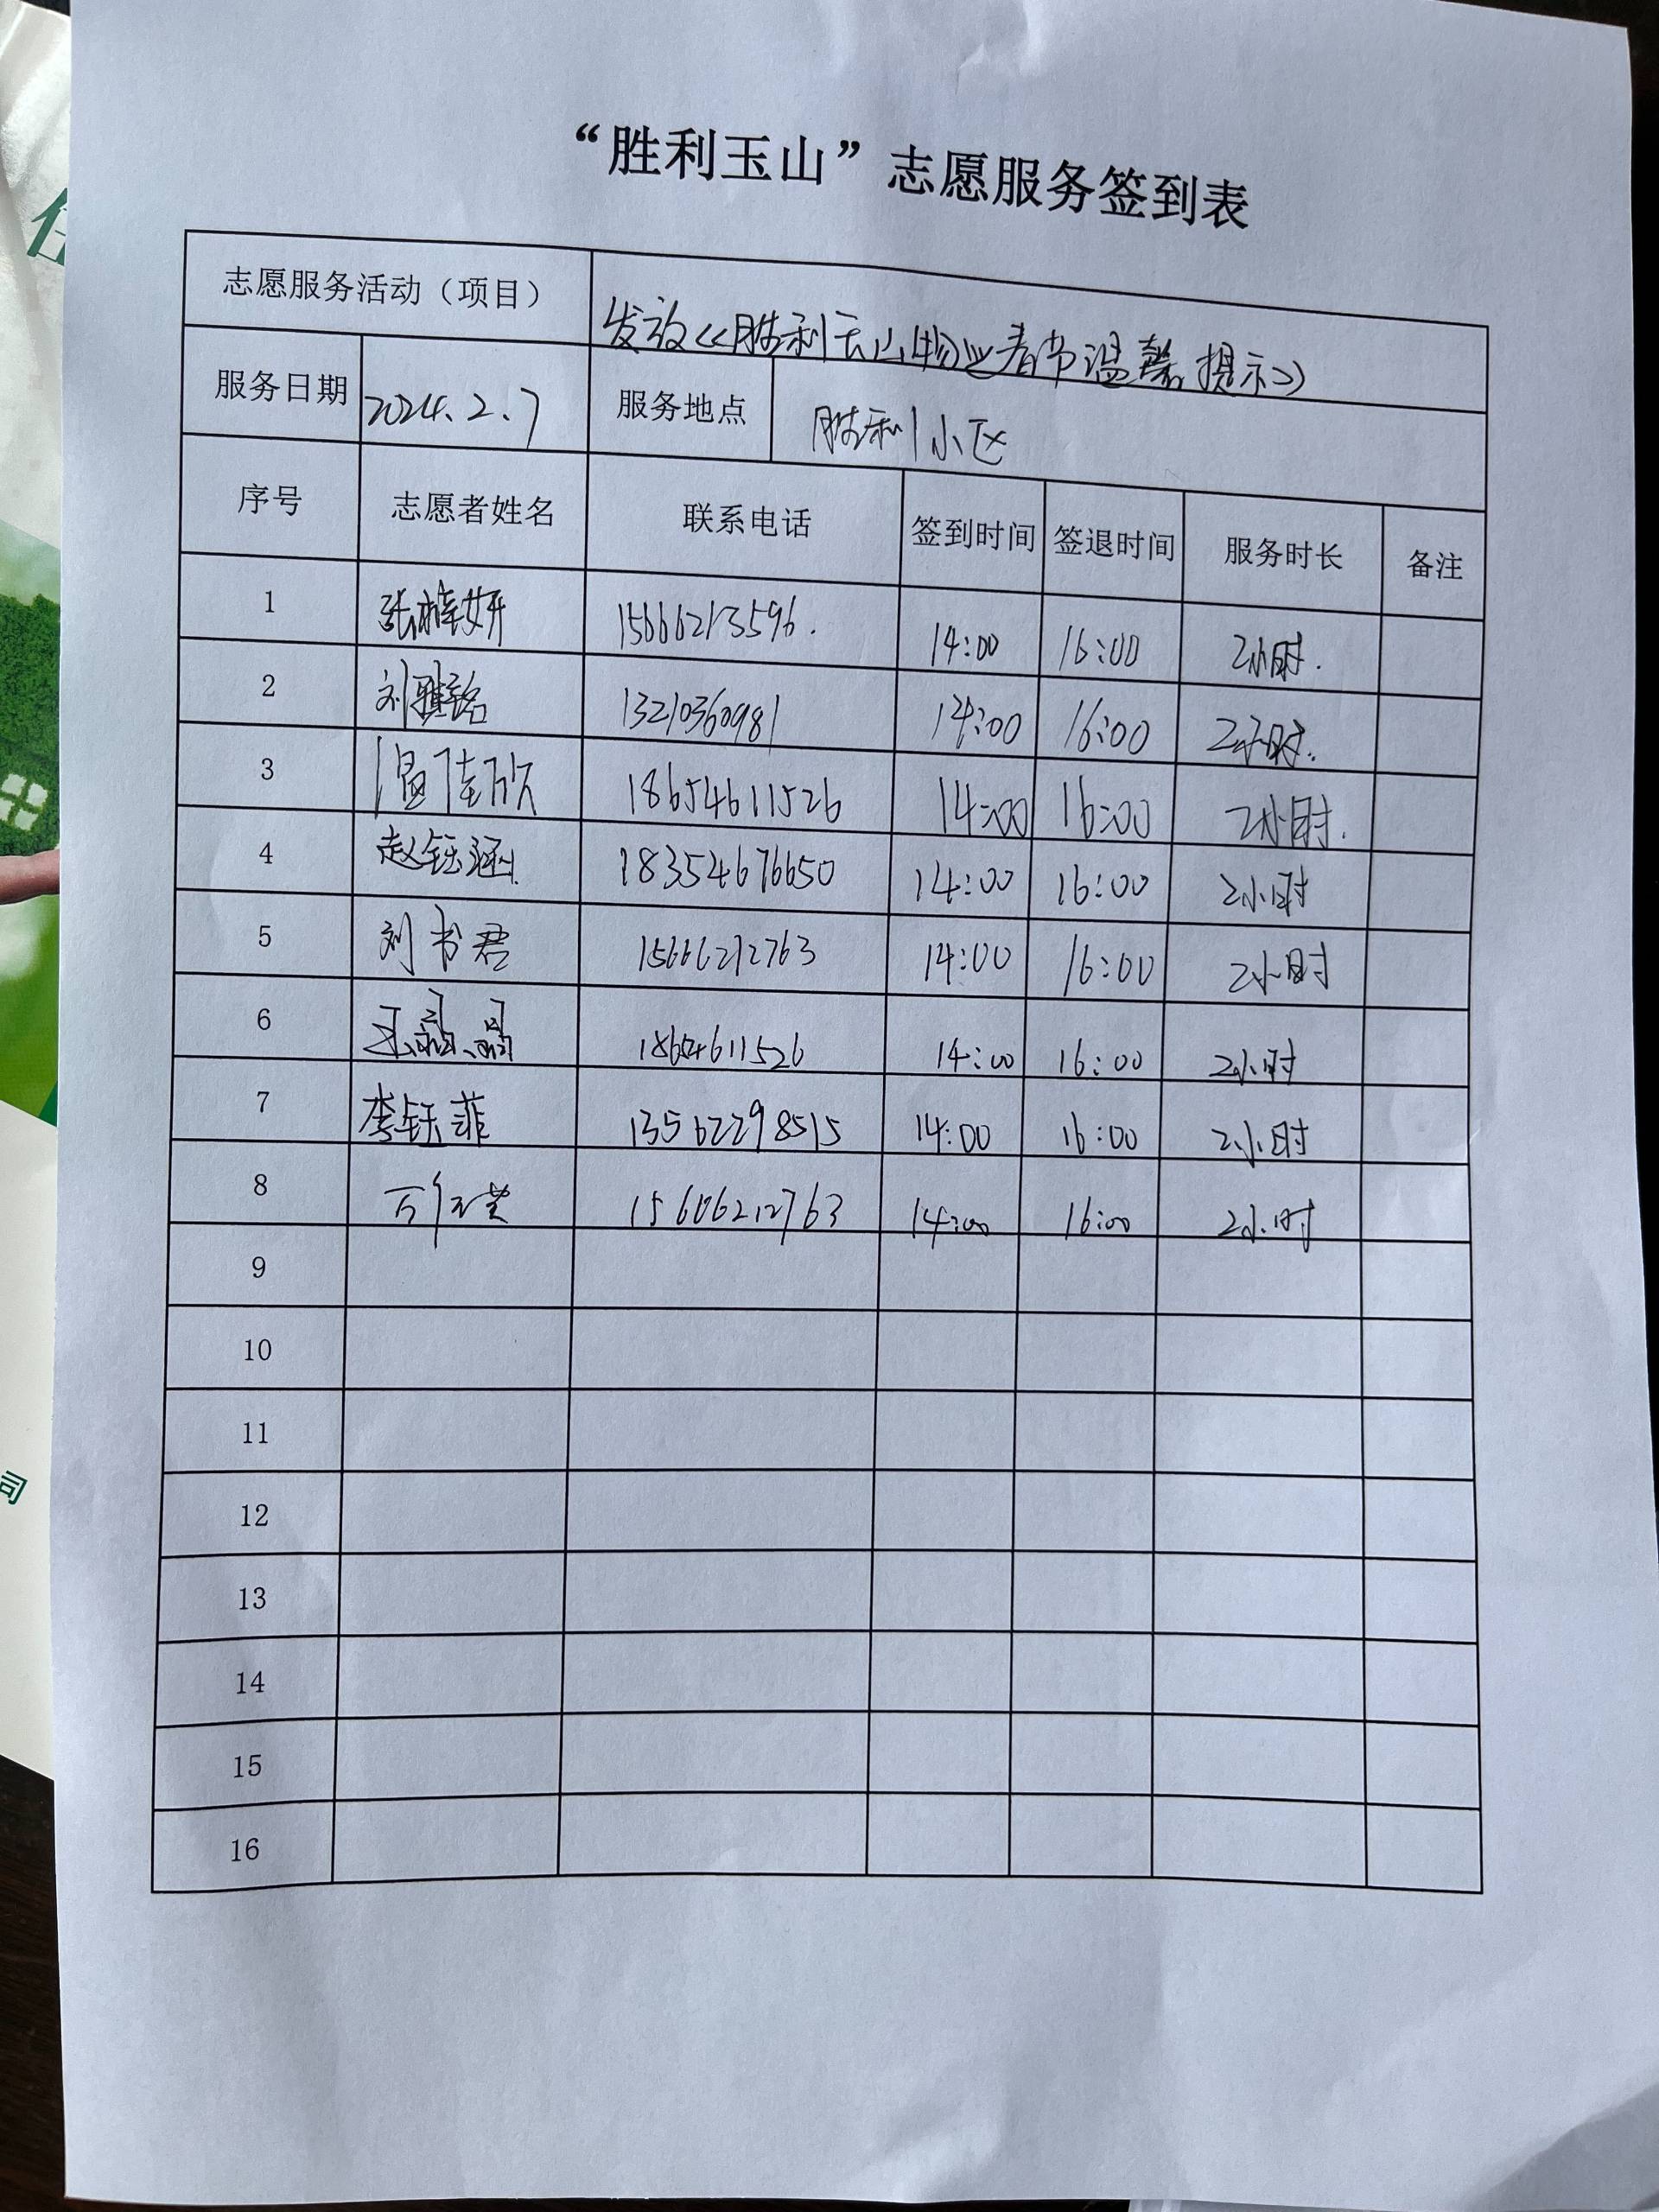 “胜利玉山”志愿服务签到表
志愿服务活动（项目） 发放《胜利玉山物业春节温馨提示》
服务日期 2024.2.7 服务地点 胜利小区
序号 志愿者姓名 联系电话 签到时间 签退时间 服务时长 备注
1 张梓妍 15666213596. 14:00 16:00 2小时.
2 刘雅铭 13210360981 14:00 16:00 2小时.
3 温佳欣 18654611526 14:00 16:00 2小时.
4 赵钰涵 18354676650 14:00 16:00 2小时
5 刘书君 15666212763 14:00 16:00 2小时
6 王晶晶 18654611526 14:00 16:00 2小时
7 李钰菲 13562298515 14:00 16:00 2小时
8 14:00 16:00 2小时
9
10
11
12
13
14
15
16
司